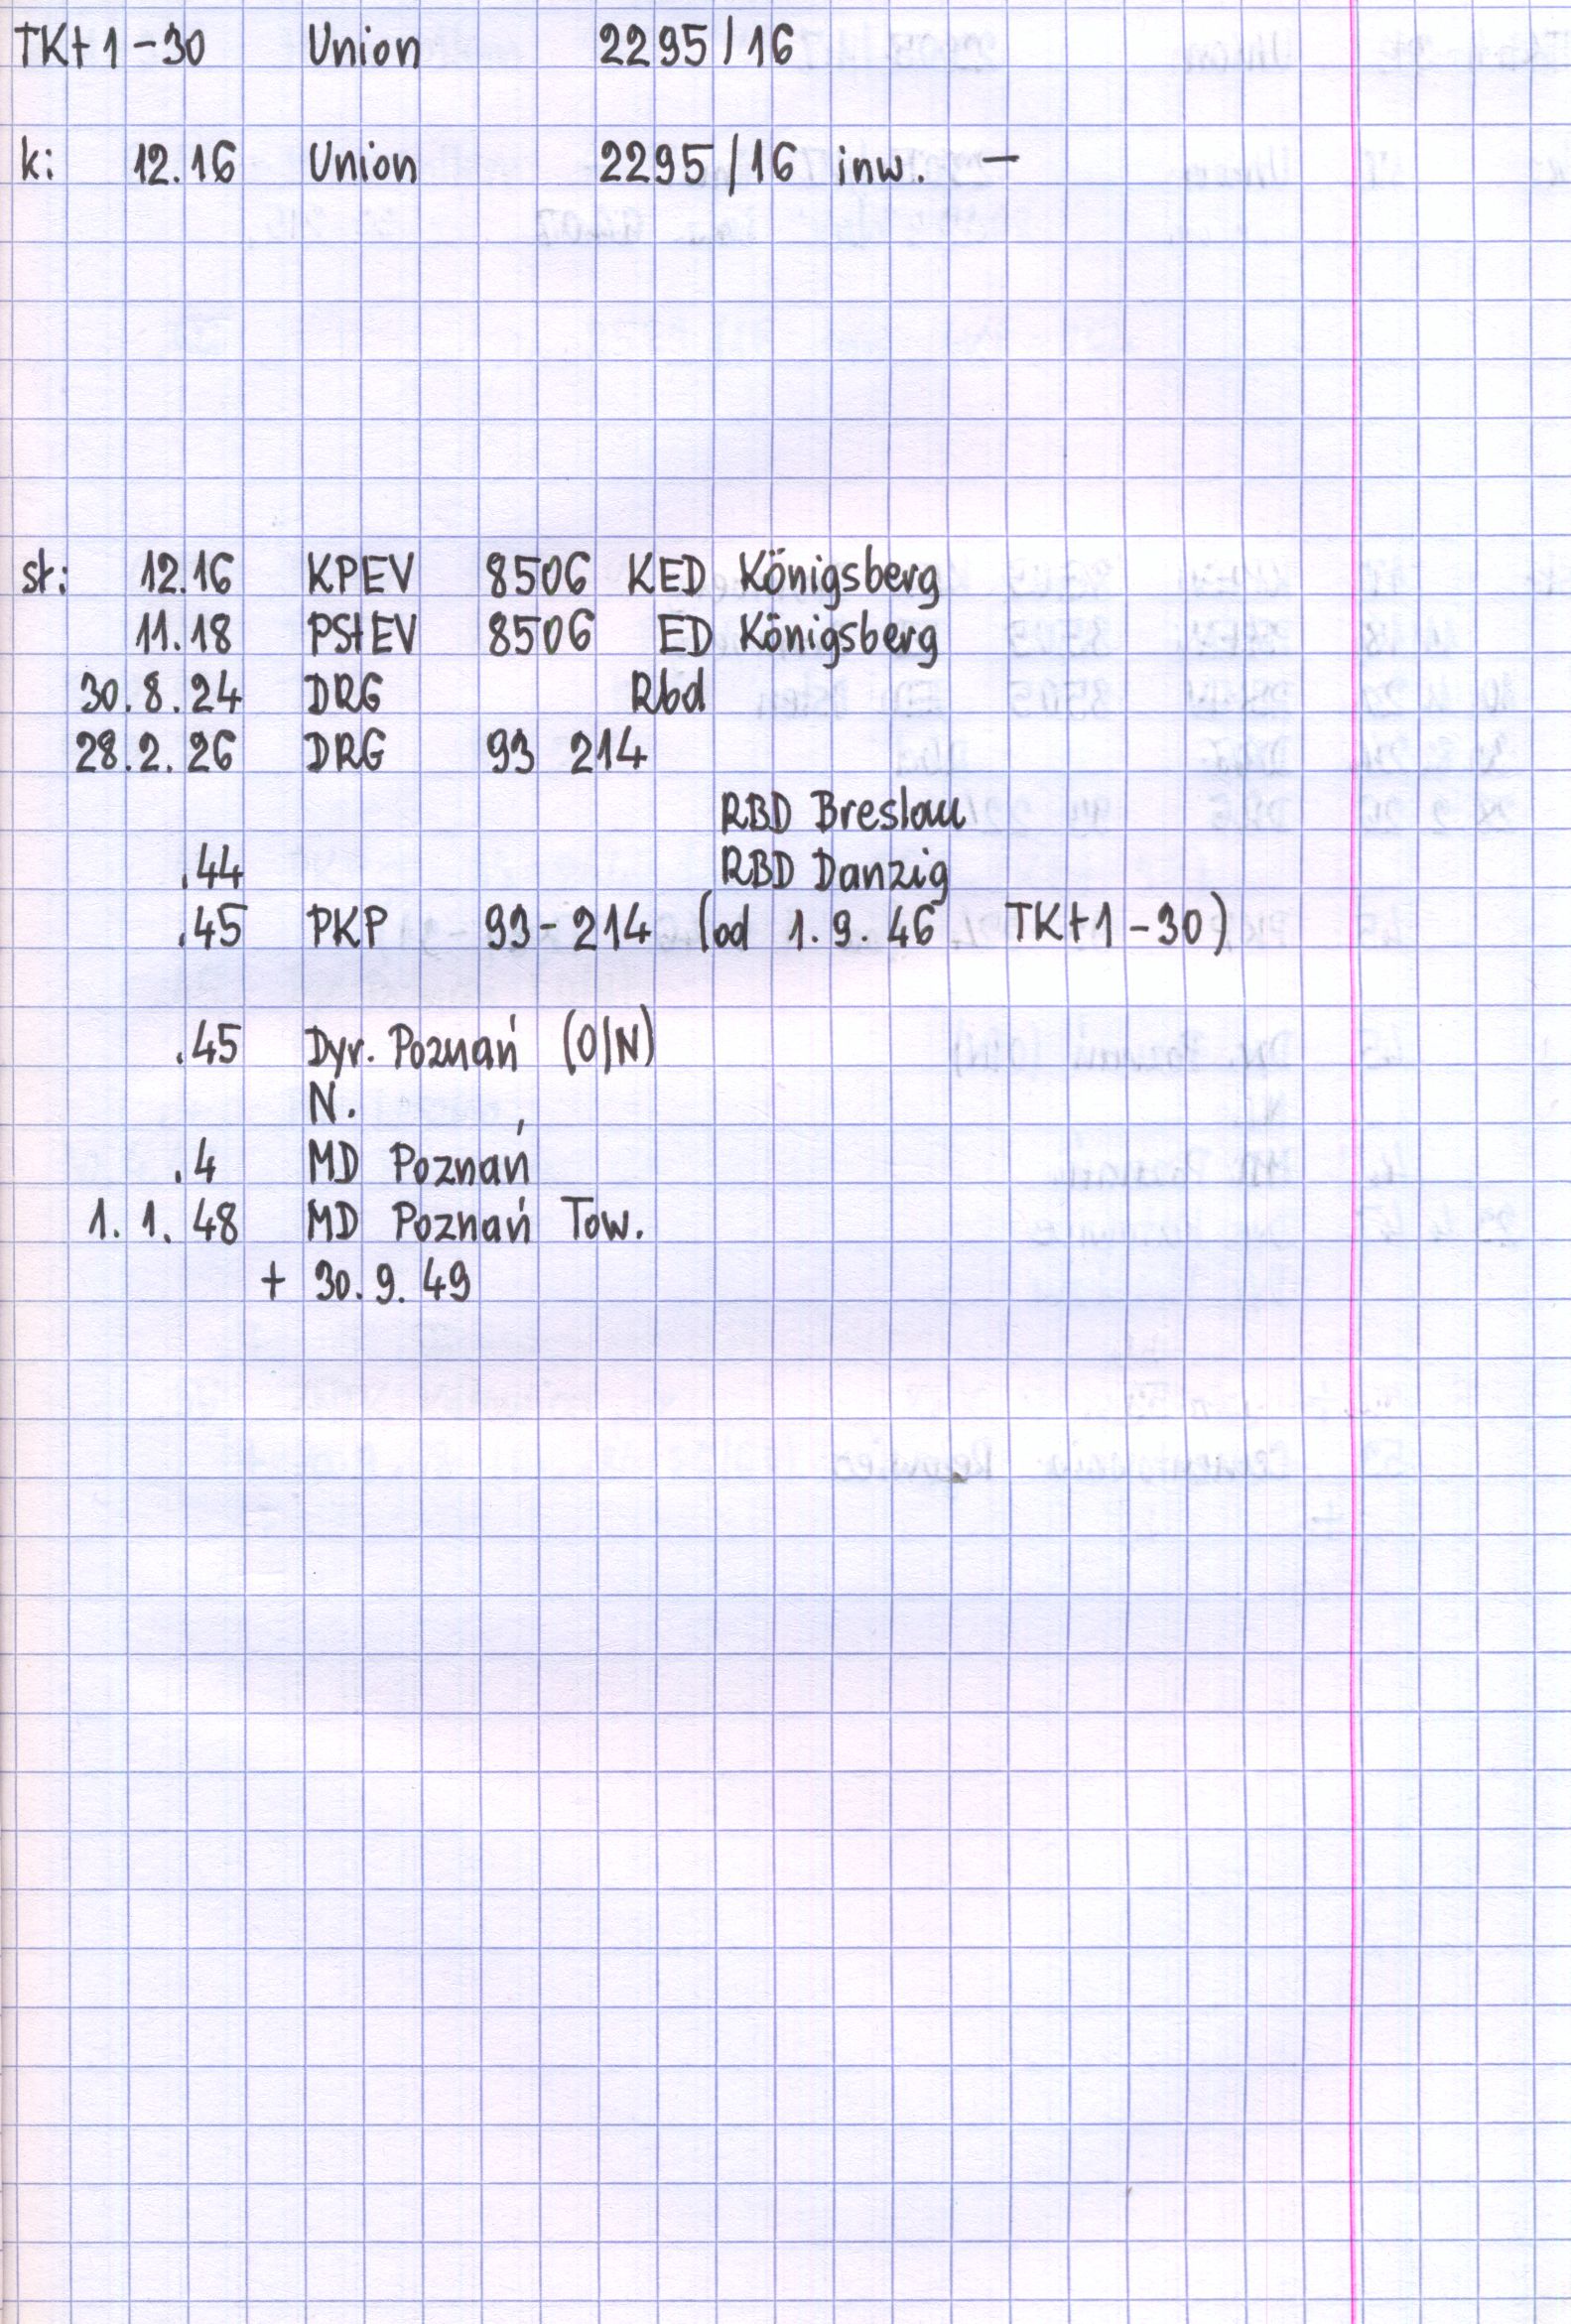 TKt1-30 Union 2295/16
k: 12.16 Union 2295/16 inw. —
st: 12.16 KPEV 8506 KED Königsberg
11.18 PStEV 8506 ED Königsberg
30.8.24 DRG Rbd
28.2.26 DRG 93 214
RBD Breslau
.44 RBD Danzig
.45 PKP 93-214 (od 1.9.46 TKt1-30)
.45 Dyr. Poznań (O/N)
N.
.4 MD Poznań
1.1.48 MD Poznań Tow.
+ 30.9.49